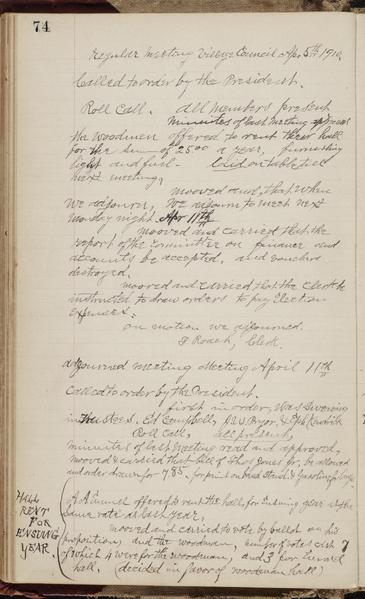 74
Regular Meeting Village Council Apr 5th 1910,
Called to order by the President.
Roll Call, All Members present
Minuites of last Meeting approved
the Woodmen offered to rent their hall
for the sum of 25.00 a year, furnishing
light and fuel - laid on table till
next meeting,
mooved and, that when
we adjourn, We adjourn to meet next
Monday night Apr 11th
mooved and carried that the
report of the Committee on finance and
accounts be accepted, and vouchers
destroyed,
moored and carried that the clerk be
instructed to draw orders to pay Election
Expenses.
on motion we adjourned.
F Roach, Clerk.
adjourned meeting Meeting April 11th
Called to order by the President.
first in order, was Swearing
in Trustees, Ed Campbell, Pryor, & Kendrick
Roll Call, all present,
minuites of last Meeting read and approved,
mooved & carried that bill of Jones for, be allowed
and order drawn for 7.85. for
offered to rent the hall for Ensuing year at the
same rate as last year,
mooved and carried to vote by ballot on his
proposition, and the woodman, number of votes cast 7
of which 4 were for the woodman, and 3 for
hall, (decided in favor of woodman hall)
HALL
RENT
FOR
ENSUING
YEAR.